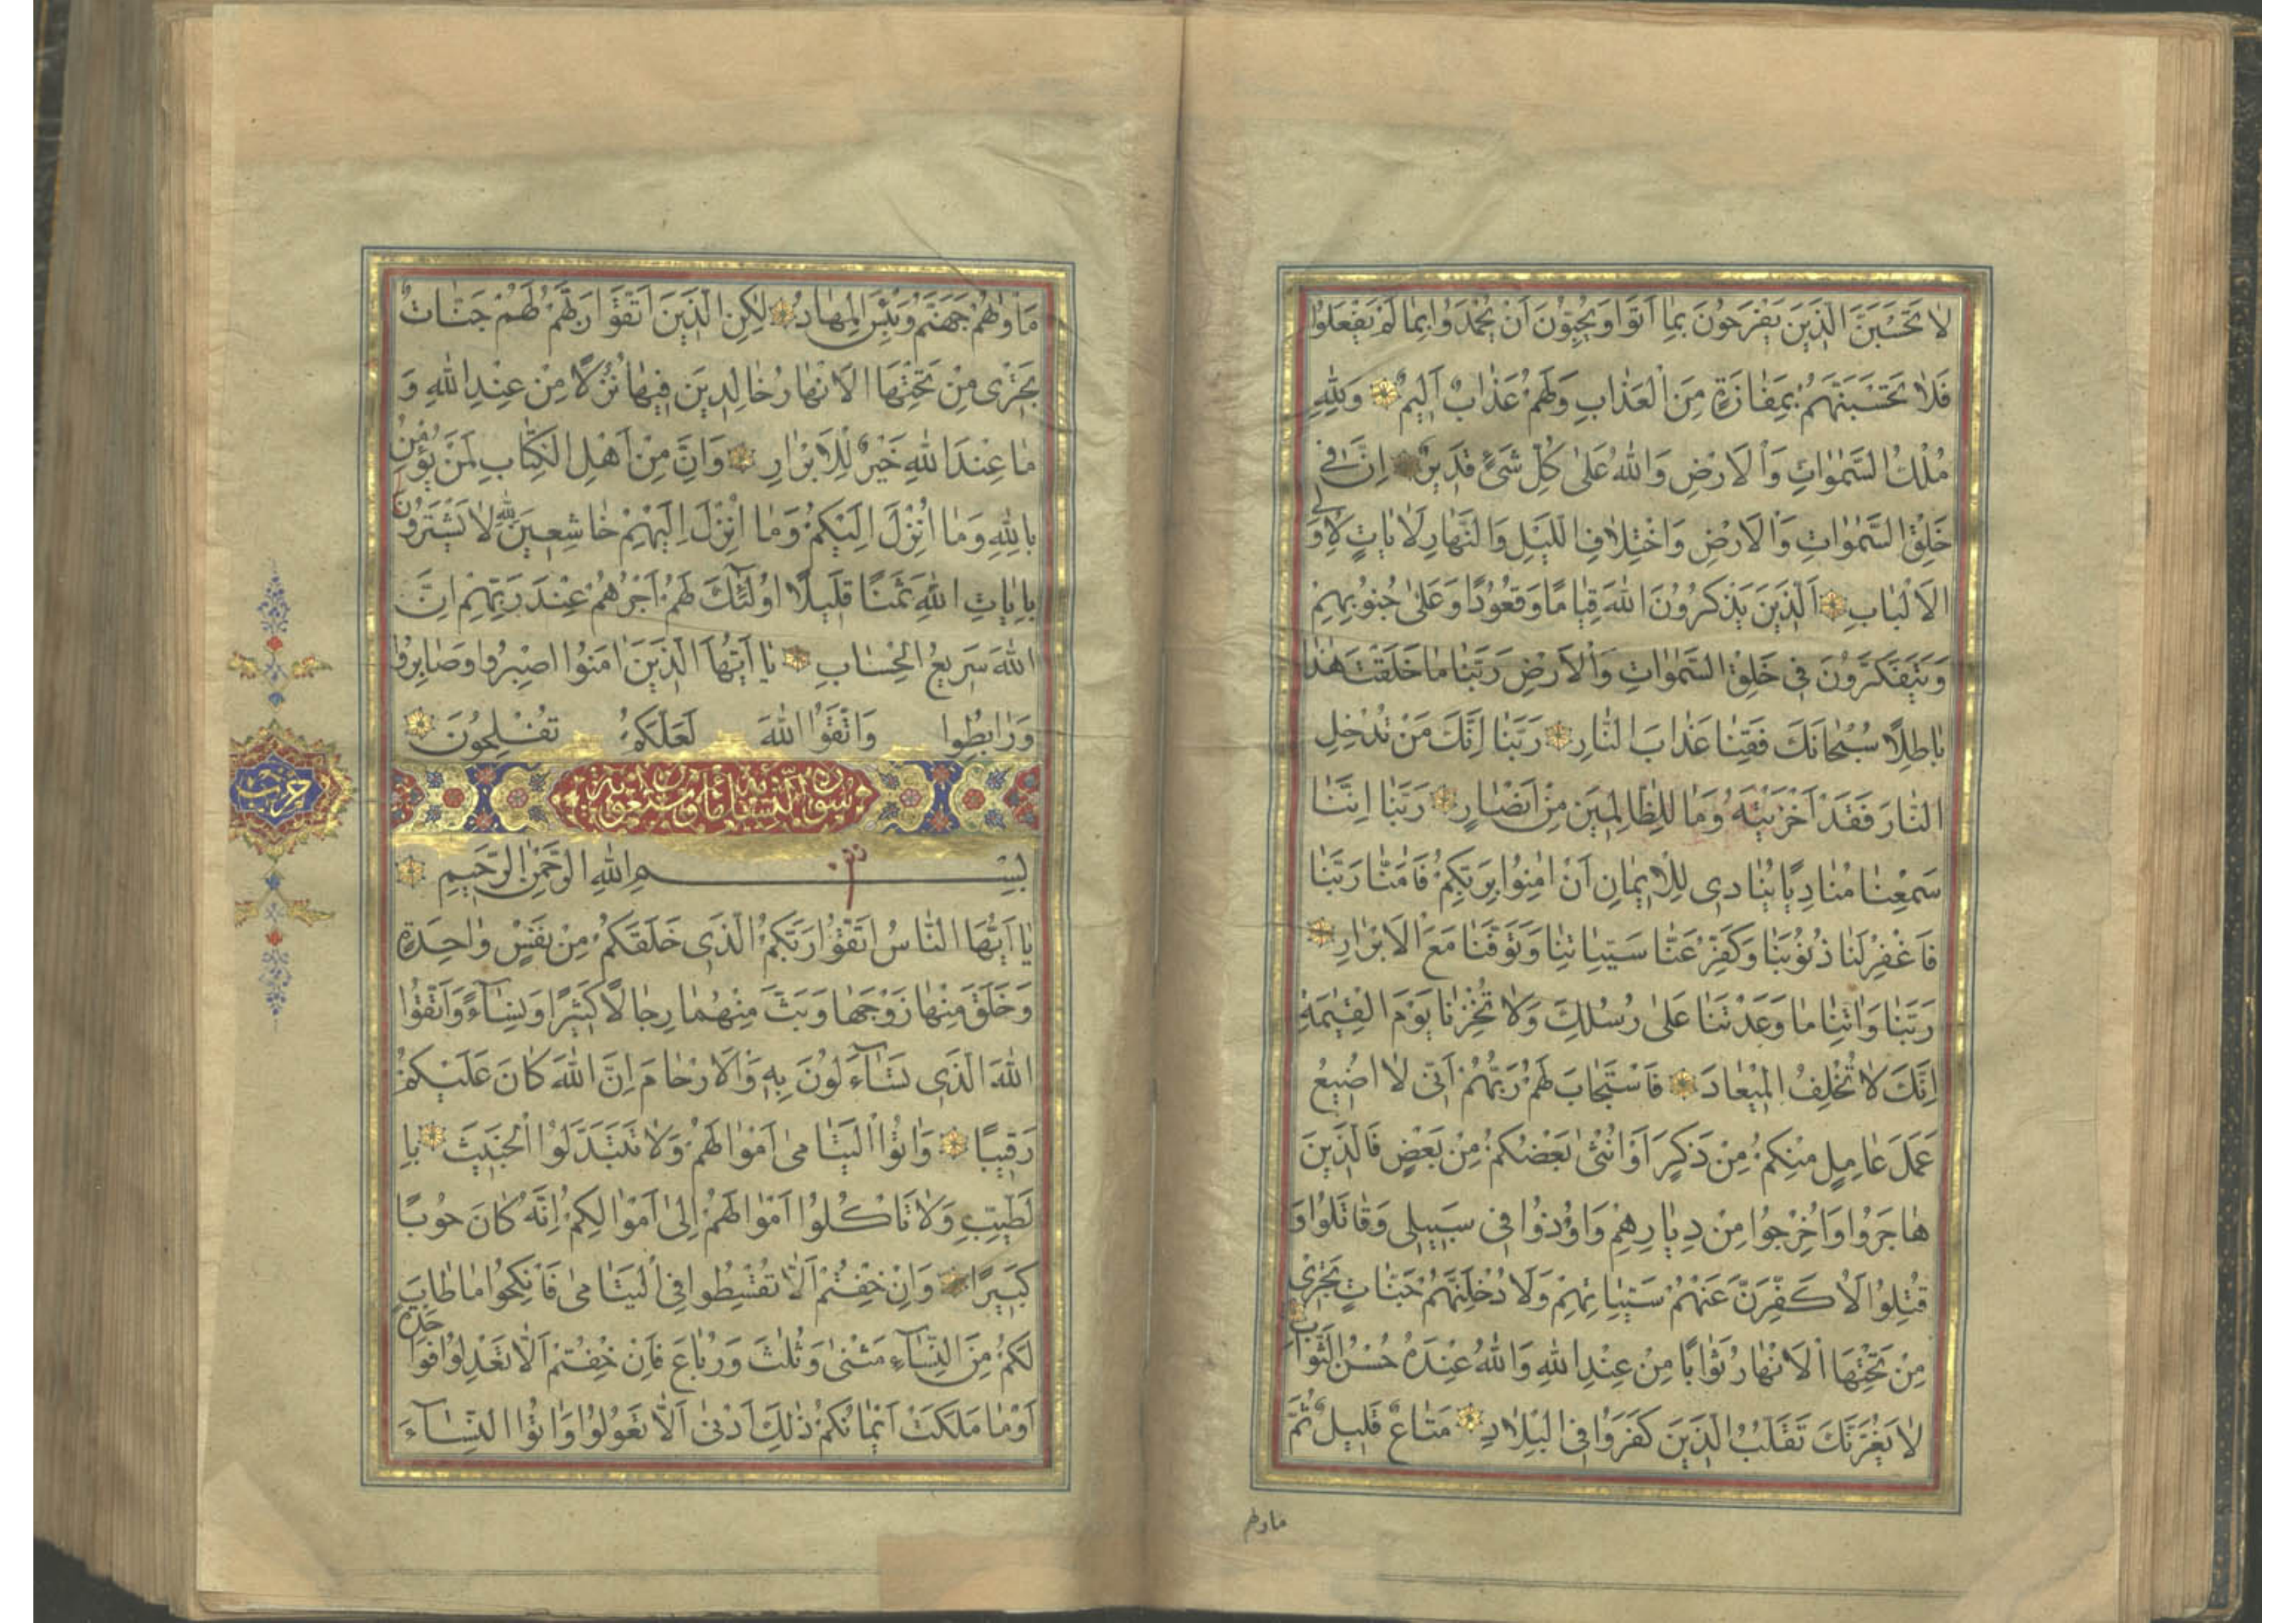 لَا تَحْسَبَنَّ الَّذِينَ يَفْرَحُونَ بِمَا أَتَوْا وَيُحِبُّونَ أَنْ يُحْمَدُوا بِمَا لَمْ يَفْعَلُوا
فَلَا تَحْسَبَنَّهُمْ بِمَفَازَةٍ مِنَ الْعَذَابِ وَلَهُمْ عَذَابٌ أَلِيمٌ وَلِلَّهِ
مُلْكُ السَّمٰوَاتِ وَالْاَرْضِ وَاللهُ عَلىٰ كُلِّ شَیْءٍ قَدِيرٌ اِنَّ فِي
خَلْقِ السَّمٰوَاتِ وَالْاَرْضِ وَاخْتِلَافِ اللَّيْلِ وَالنَّهَارِ لَاٰيَاتٍ لِاُو۟لِي
الْاَلْبَابِ اَلَّذِينَ يَذْكُرُونَ اللهَ قِيَامًا وَقُعُودًا وَعَلىٰ جُنُوبِهِمْ
وَيَتَفَكَّرُونَ فِي خَلْقِ السَّمٰوَاتِ وَالْاَرْضِ رَبَّنَا مَا خَلَقْتَ هٰذَا
بَاطِلًا سُبْحَانَكَ فَقِنَا عَذَابَ النَّارِ رَبَّنَا اِنَّكَ مَنْ تُدْخِلِ
النَّارَ فَقَدْ اَخْزَيْتَهُ وَمَا لِلظَّالِمِينَ مِنْ اَنْصَارٍ رَبَّنَا اِنَّنَا
سَمِعْنَا مُنَادِيًا يُنَادِي لِلْاِيمَانِ اَنْ اٰمِنُوا بِرَبِّكُمْ فَاٰمَنَّا رَبَّنَا
فَاغْفِرْ لَنَا ذُنُوبَنَا وَكَفِّرْ عَنَّا سَيِّـَٔاتِنَا وَتَوَفَّنَا مَعَ الْاَبْرَارِ
رَبَّنَا وَاٰتِنَا مَا وَعَدْتَنَا عَلىٰ رُسُلِكَ وَلَا تُخْزِنَا يَوْمَ الْقِيٰمَةِ
اِنَّكَ لَا تُخْلِفُ الْمِيعَادَ فَاسْتَجَابَ لَهُمْ رَبُّهُمْ اَنِّي لَا اُضِيعُ
عَمَلَ عَامِلٍ مِنْكُمْ مِنْ ذَكَرٍ اَوْ اُنْثىٰ بَعْضُكُمْ مِنْ بَعْضٍ فَالَّذِينَ
هَاجَرُوا وَاُخْرِجُوا مِنْ دِيَارِهِمْ وَاُوذُوا فِي سَبِيلِي وَقَاتَلُوا وَ
قُتِلُوا لَاُكَفِّرَنَّ عَنْهُمْ سَيِّـَٔاتِهِمْ وَلَاُدْخِلَنَّهُمْ جَنَّاتٍ تَجْرِي
مِنْ تَحْتِهَا الْاَنْهَارُ ثَوَابًا مِنْ عِنْدِ اللهِ وَاللهُ عِنْدَهُ حُسْنُ الثَّوَابِ
لَا يَغُرَّنَّكَ تَقَلُّبُ الَّذِينَ كَفَرُوا فِي الْبِلَادِ مَتَاعٌ قَلِيلٌ ثُمَّ
ماوٰهم
مَاْوٰهُمْ جَهَنَّمُ وَبِئْسَ الْمِهَادُ لٰكِنِ الَّذِينَ اتَّقَوْا رَبَّهُمْ لَهُمْ جَنَّاتٌ
تَجْرِي مِنْ تَحْتِهَا الْاَنْهَارُ خَالِدِينَ فِيهَا نُزُلًا مِنْ عِنْدِ اللهِ وَ
مَا عِنْدَ اللهِ خَيْرٌ لِلْاَبْرَارِ وَاِنَّ مِنْ اَهْلِ الْكِتَابِ لَمَنْ يُؤْمِنُ
بِاللهِ وَمَا اُنْزِلَ اِلَيْكُمْ وَمَا اُنْزِلَ اِلَيْهِمْ خَاشِعِينَ لِلهِ لَا يَشْتَرُونَ
بِاٰيَاتِ اللهِ ثَمَنًا قَلِيلًا اُولٰئِكَ لَهُمْ اَجْرُهُمْ عِنْدَ رَبِّهِمْ اِنَّ
اللهَ سَرِيعُ الْحِسَابِ يَا اَيُّهَا الَّذِينَ اٰمَنُوا اصْبِرُوا وَصَابِرُوا
وَرَابِطُوا وَاتَّقُوا اللهَ لَعَلَّكُمْ تُفْلِحُونَ
حزب
بِسْمِ اللهِ الرَّحْمٰنِ الرَّحِيمِ
يَا اَيُّهَا النَّاسُ اتَّقُوا رَبَّكُمُ الَّذِي خَلَقَكُمْ مِنْ نَفْسٍ وَاحِدَةٍ
وَخَلَقَ مِنْهَا زَوْجَهَا وَبَثَّ مِنْهُمَا رِجَالًا كَثِيرًا وَنِسَآءً وَاتَّقُوا
اللهَ الَّذِي تَسَآءَلُونَ بِهِ وَالْاَرْحَامَ اِنَّ اللهَ كَانَ عَلَيْكُمْ
رَقِيبًا وَاٰتُوا الْيَتَامىٰ اَمْوَالَهُمْ وَلَا تَتَبَدَّلُوا الْخَبِيثَ بِا
لطَّيِّبِ وَلَا تَاْكُلُوا اَمْوَالَهُمْ اِلىٰ اَمْوَالِكُمْ اِنَّهُ كَانَ حُوبًا
كَبِيرًا وَاِنْ خِفْتُمْ اَلَّا تُقْسِطُوا فِي الْيَتَامىٰ فَانْكِحُوا مَا طَابَ
لَكُمْ مِنَ النِّسَآءِ مَثْنىٰ وَثُلٰثَ وَرُبَاعَ فَاِنْ خِفْتُمْ اَلَّا تَعْدِلُوا فَوَاحِدَةً
اَوْ مَا مَلَكَتْ اَيْمَانُكُمْ ذٰلِكَ اَدْنىٰ اَلَّا تَعُولُوا وَاٰتُوا النِّسَآءَ